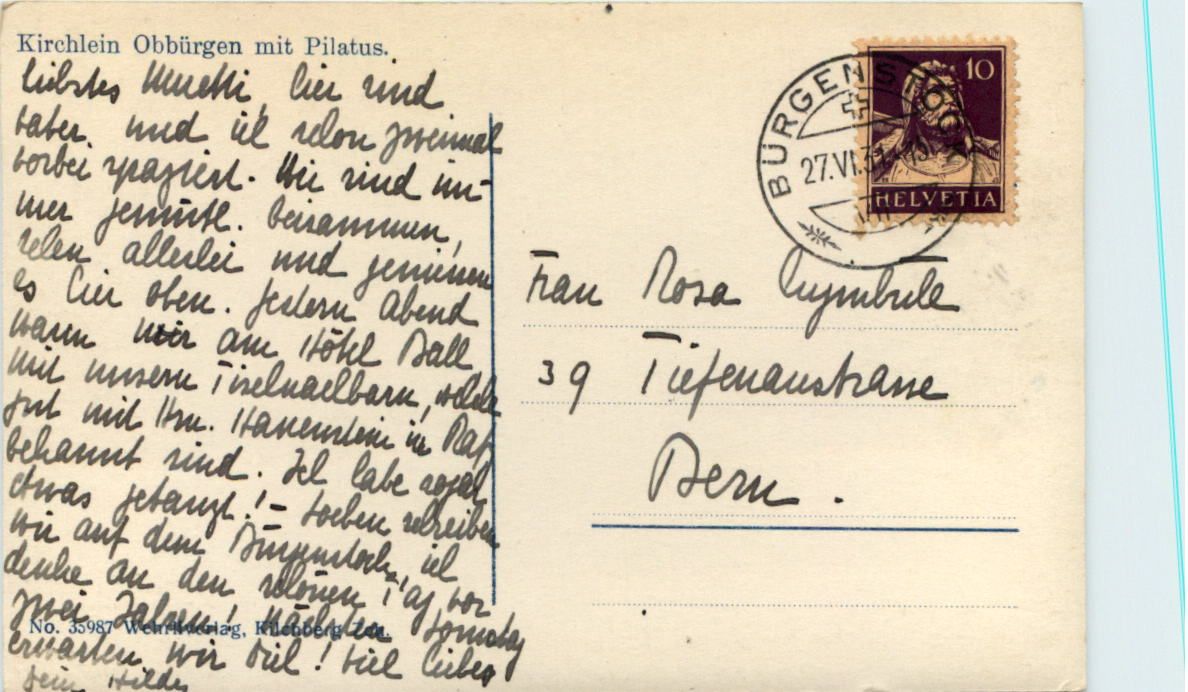 Kirchlein Obbürgen mit Pilatus.
liebstes Muetti, hier sind
Vater und ich schon zweimal
vorbei spaziert. Wir sind im-
mer gemütl. beisammen,
reden allerlei und geniessen
es hier oben. Gestern Abend
waren wir am Hôtel Ball
mit unsern Tischnachbarn, welche
gut mit Hrn. Hauenstein in Raf
bekannt sind. Ich habe sogar
etwas getanzt! – Soeben schreiben
wir auf dem Bürgenstock, ich
denke an den schönen Tag vor
zwei Jahren! Nächsten Sonntag
erwarten wir Dich! Viel liebes
Dein Hildy
No. 35987 Wehrliverlag, Kilchberg Zch.
BÜRGENSTOCK
27.VI.31
10
HELVETIA
Frau Rosa
39 Tiefenaustrasse
Bern.